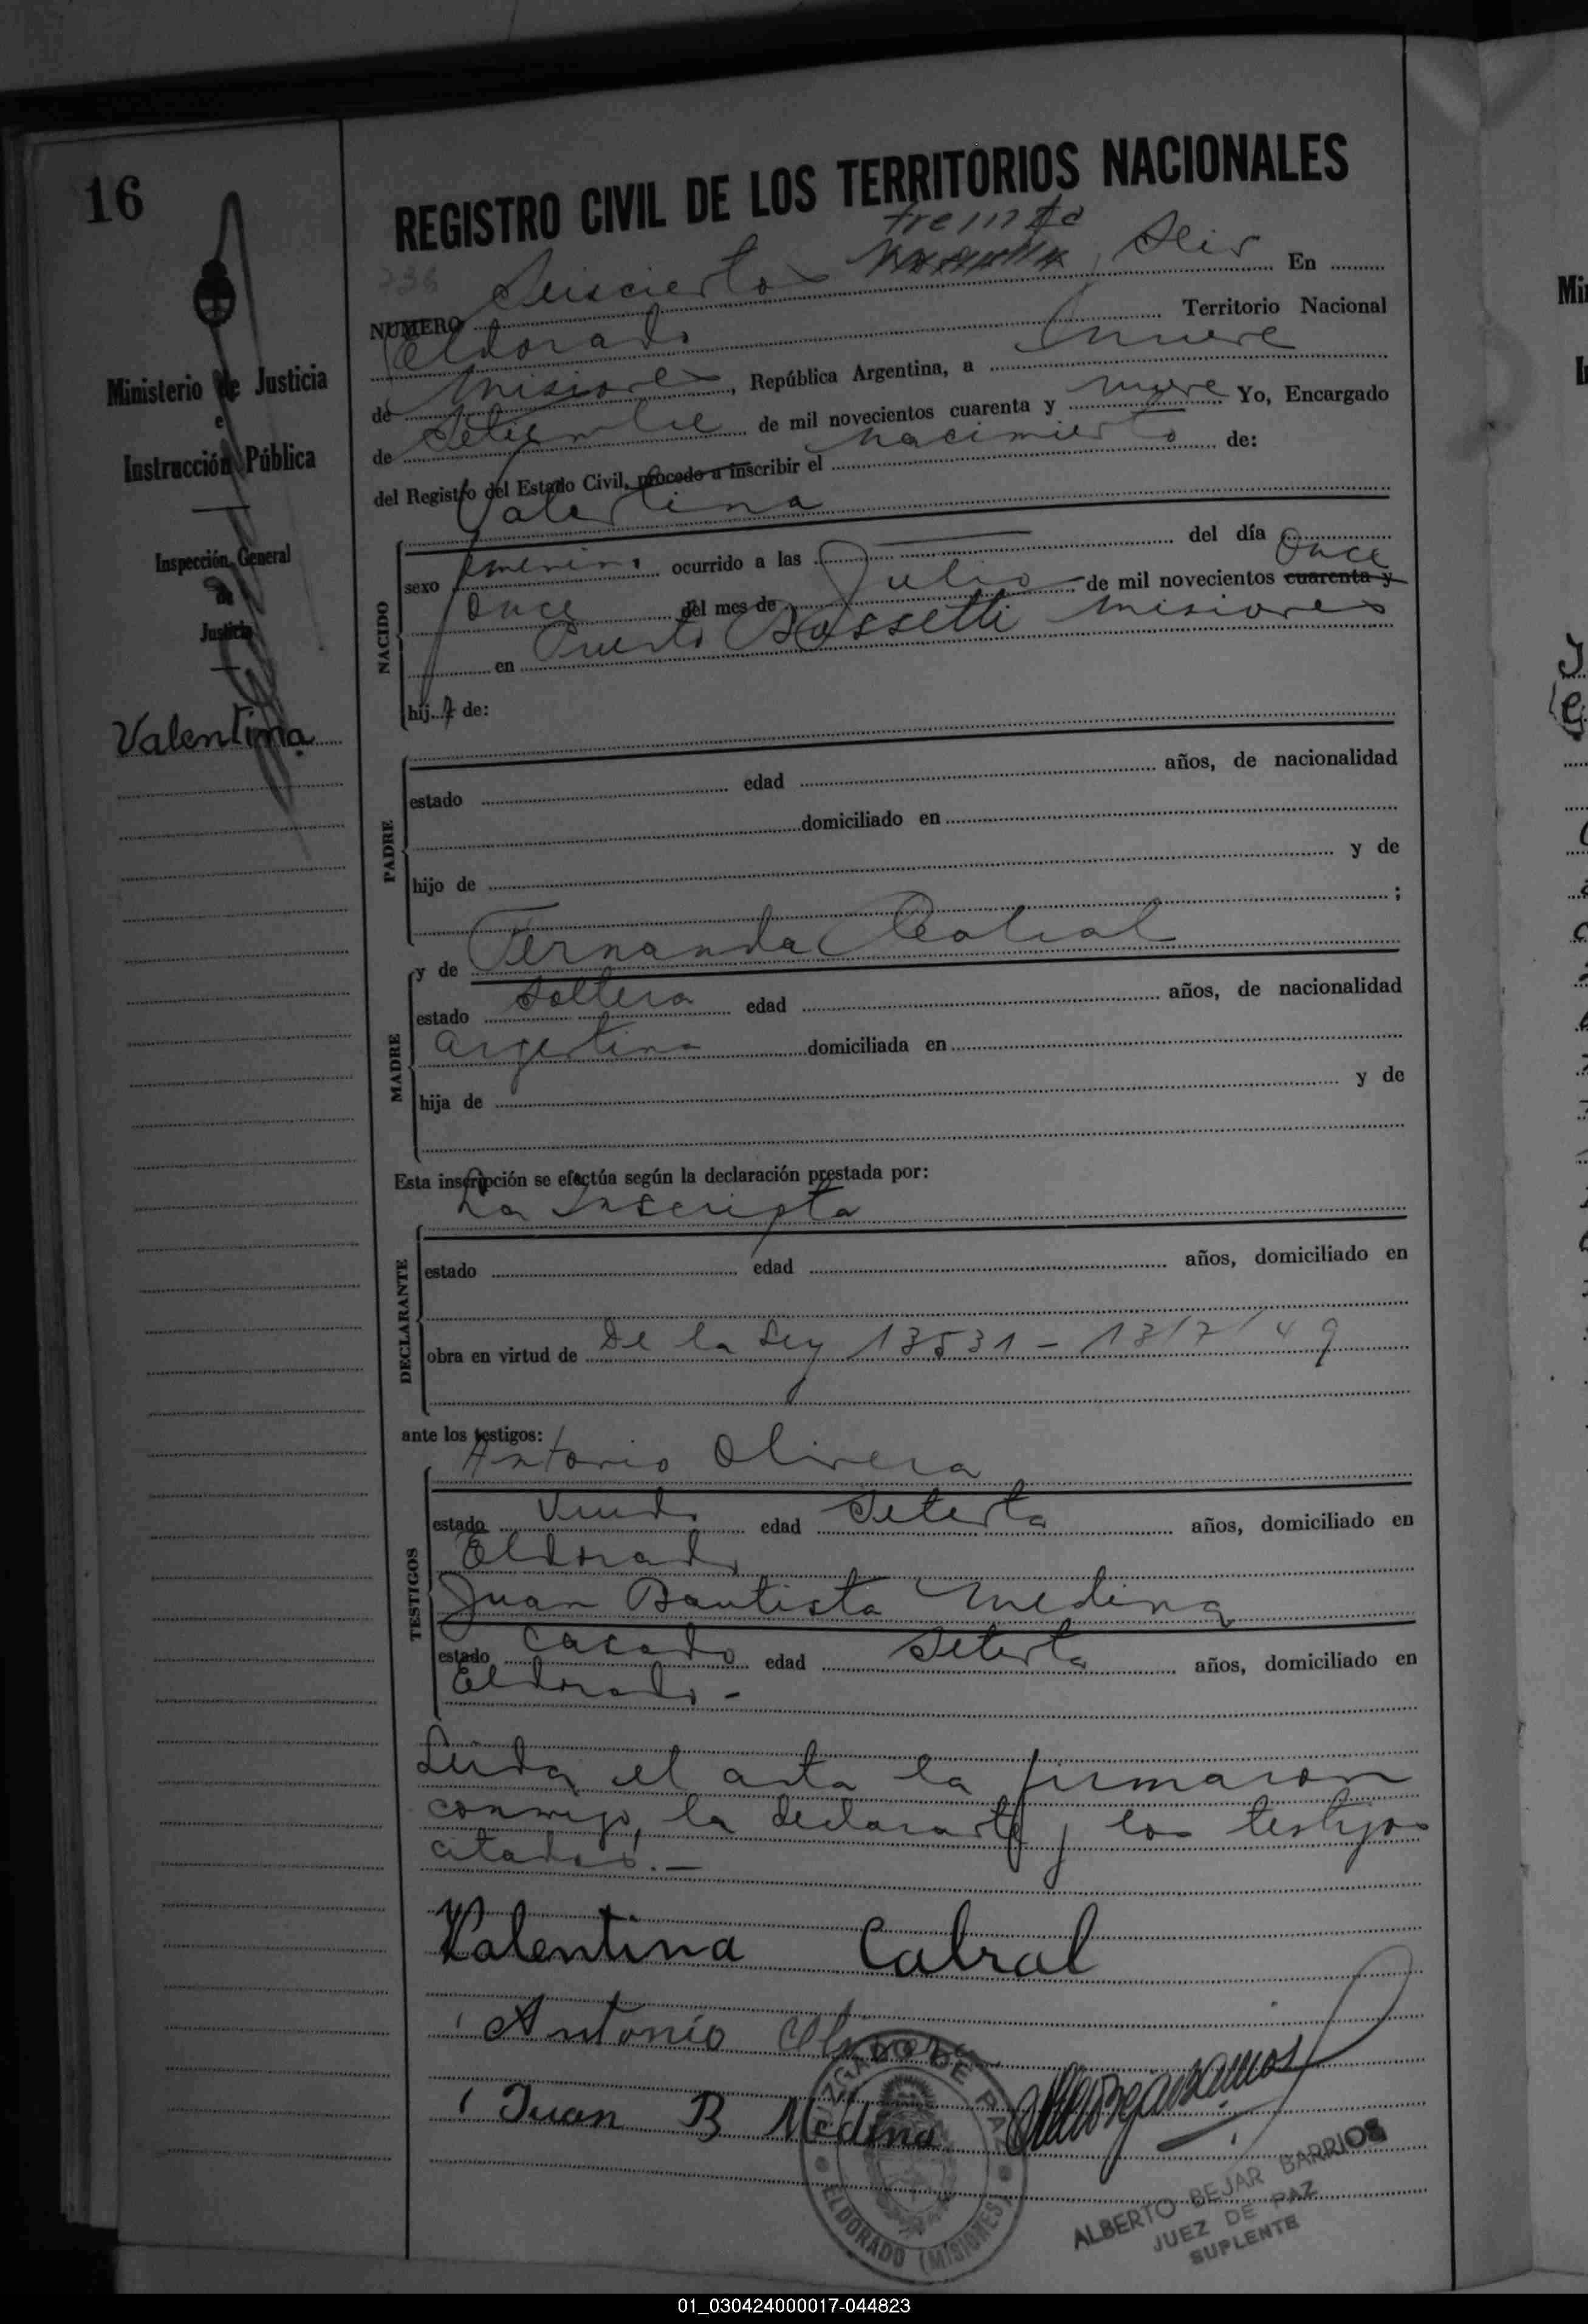 16
REGISTRO CIVIL DE LOS TERRITORIOS NACIONALES
treinta
736
NUMERO Seiscientos y Seis En
Eldorado Territorio Nacional
de Misiones, República Argentina, a nueve
de Setiembre de mil novecientos cuarenta y nueve Yo, Encargado
del Registro del Estado Civil, procedo a inscribir el nacimiento de:
Valentina
NACIDO
sexo femenino ocurrido a las del día Once
Once del mes de Julio de mil novecientos cuarenta y
en Puerto Bossetti Misiones
hij de:
PADRE
estado edad años, de nacionalidad
domiciliado en
hijo de y de
;
y de Fernanda Cabral
MADRE
estado Soltera edad años, de nacionalidad
argentina domiciliada en
hija de y de
Esta inscripción se efectúa según la declaración prestada por:
La Inscripta
DECLARANTE
estado edad años, domiciliado en
obra en virtud de De la Ley 13531 - 13/7/49
ante los testigos:
Antonio Olivera
TESTIGOS
estado Viudo edad Setenta años, domiciliado en
Eldorado
Juan Bautista Medina
estado Casado edad Setenta años, domiciliado en
Eldorado -
Leida el acta la firmaron
conmigo, la declarante y los testigos
citados. -
Valentina Cabral
Antonio Olivera
Juan B Medina
JUZGADO DE PAZ
ELDORADO (MISIONES)
ALBERTO BEJAR BARRIOS
JUEZ DE PAZ
SUPLENTE
Ministerio de Justicia
e
Instrucción Pública
Inspección General
de
Justicia
Valentina
01_030424000017-044823